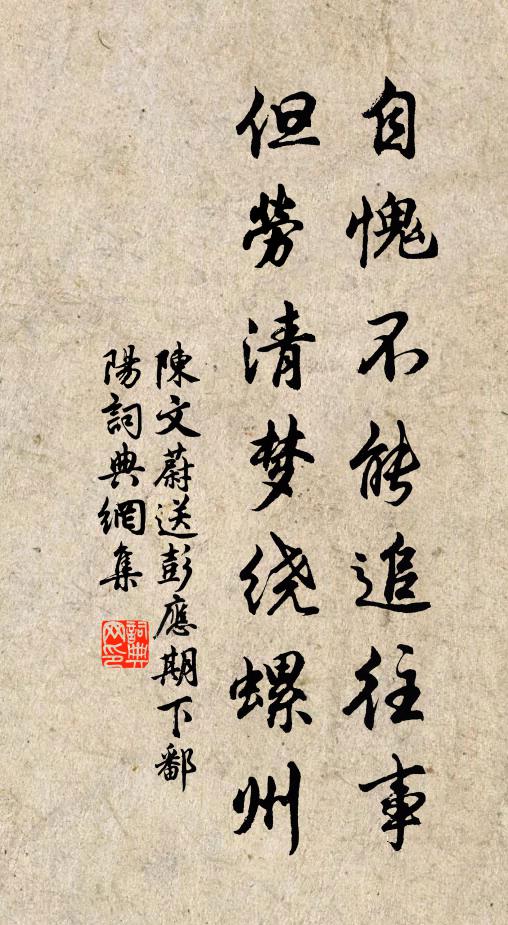 自愧不能追往事
但勞清梦绕螺州
陳文蔚送彭應期下鄱
陽詞典網集
詞典
网印